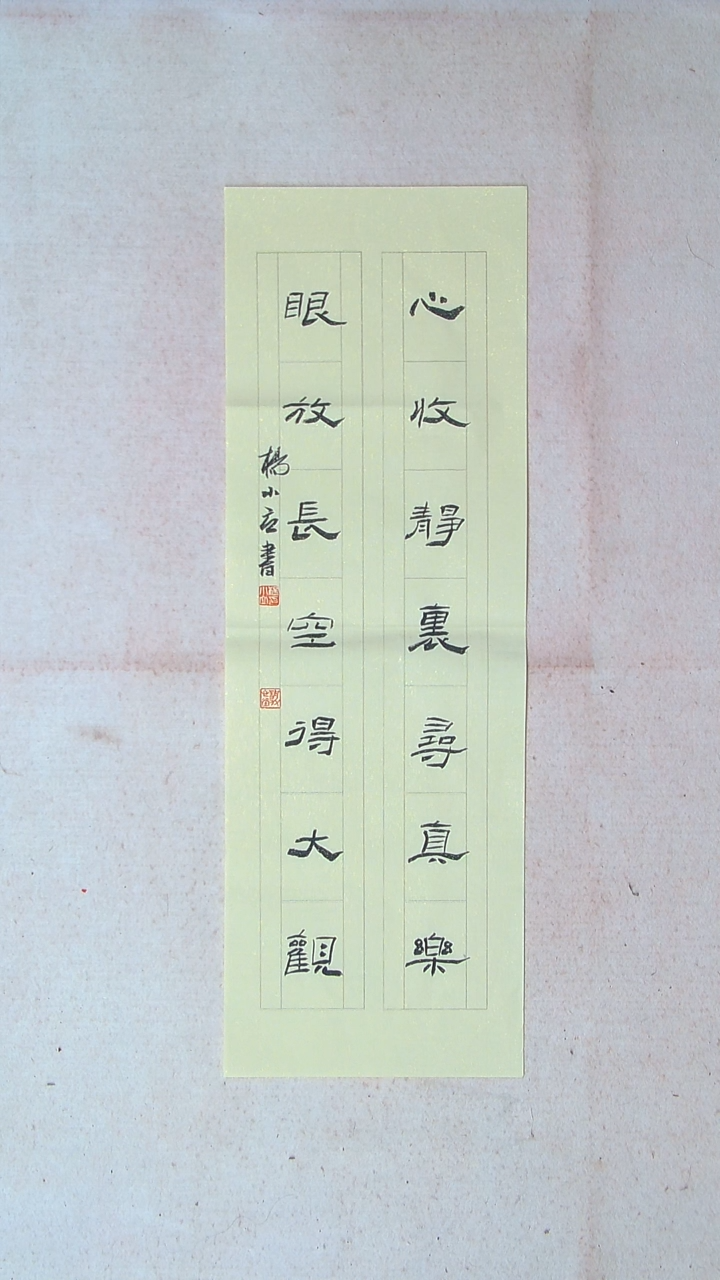 心收靜裏尋真樂
眼放長空得大觀
楊小
書